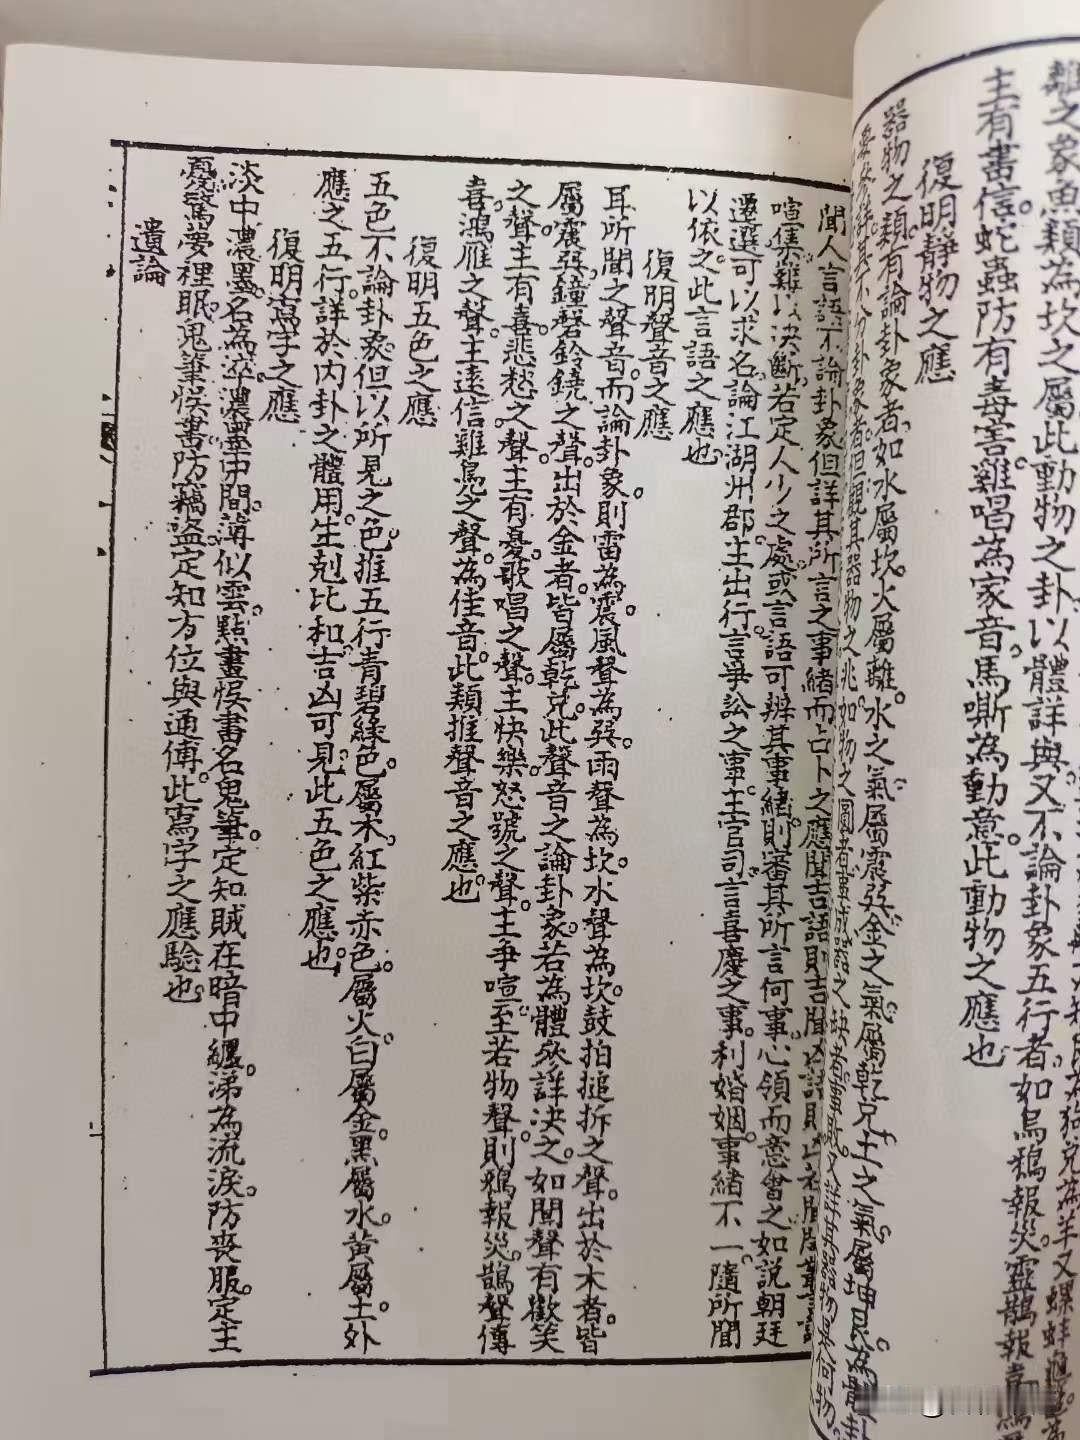 離之象魚類為坎之屬此動物之卦以體詳與又不論卦象五行者如烏鴉報災靈鵲報喜鴻
主有書信蛇蟲防有毒害雞唱為家音馬嘶為動意此動物之應也
復明靜物之應
器物之類有論卦象者如水屬坎火屬離水之氣屬震巽金之氣屬乾兌土之氣屬坤艮為體卦
要參詳其不分卦象者但觀其器物之兆如物之圓者事成器之缺者事敗又詳其器物是何物
聞人言語不論卦象但詳其所言之事緒而占卜之應聞吉語則吉聞凶語則凶
喧集難以決斷若定人少之處或言語可辨其事緒則審其所言何事心領而意會之如說朝廷
遷選可以求名論江湖州郡主出行言爭訟之事主官司言喜慶之事利婚姻事緒不一隨所聞
以依之此言語之應也
復明聲音之應
耳所聞之聲音而論卦象則雷為震風聲為巽雨聲為坎水聲為坎鼓拍搥拆之聲出於木者皆
屬震巽鐘磬鈴鐃之聲出於金者皆屬乾兌此聲音之論卦象若為體參詳決之如聞聲有歡笑
之聲主有喜悲愁之聲主有憂歌唱之聲主快樂怒號之聲主爭喧至若物聲則鴉報災鵲聲傳
喜鴻雁之聲主遠信雞鳧之聲為佳音此類推聲音之應也
復明五色之應
五色不論卦象但以所見之色推五行青碧綠色屬木紅紫赤色屬火白屬金黑屬水黄屬土外
應之五行詳於內卦之體用生剋比和吉凶可見此五色之應也
復明寫字之應
淡中濃墨名為淬濃墨中間薄似雲點畫悮書名鬼筆定知賊在暗中纏涕為流淚防喪服定主
憂驚夢裡眠鬼筆悮書防竊盜定知方位與通傳此寫字之應驗也
遺論